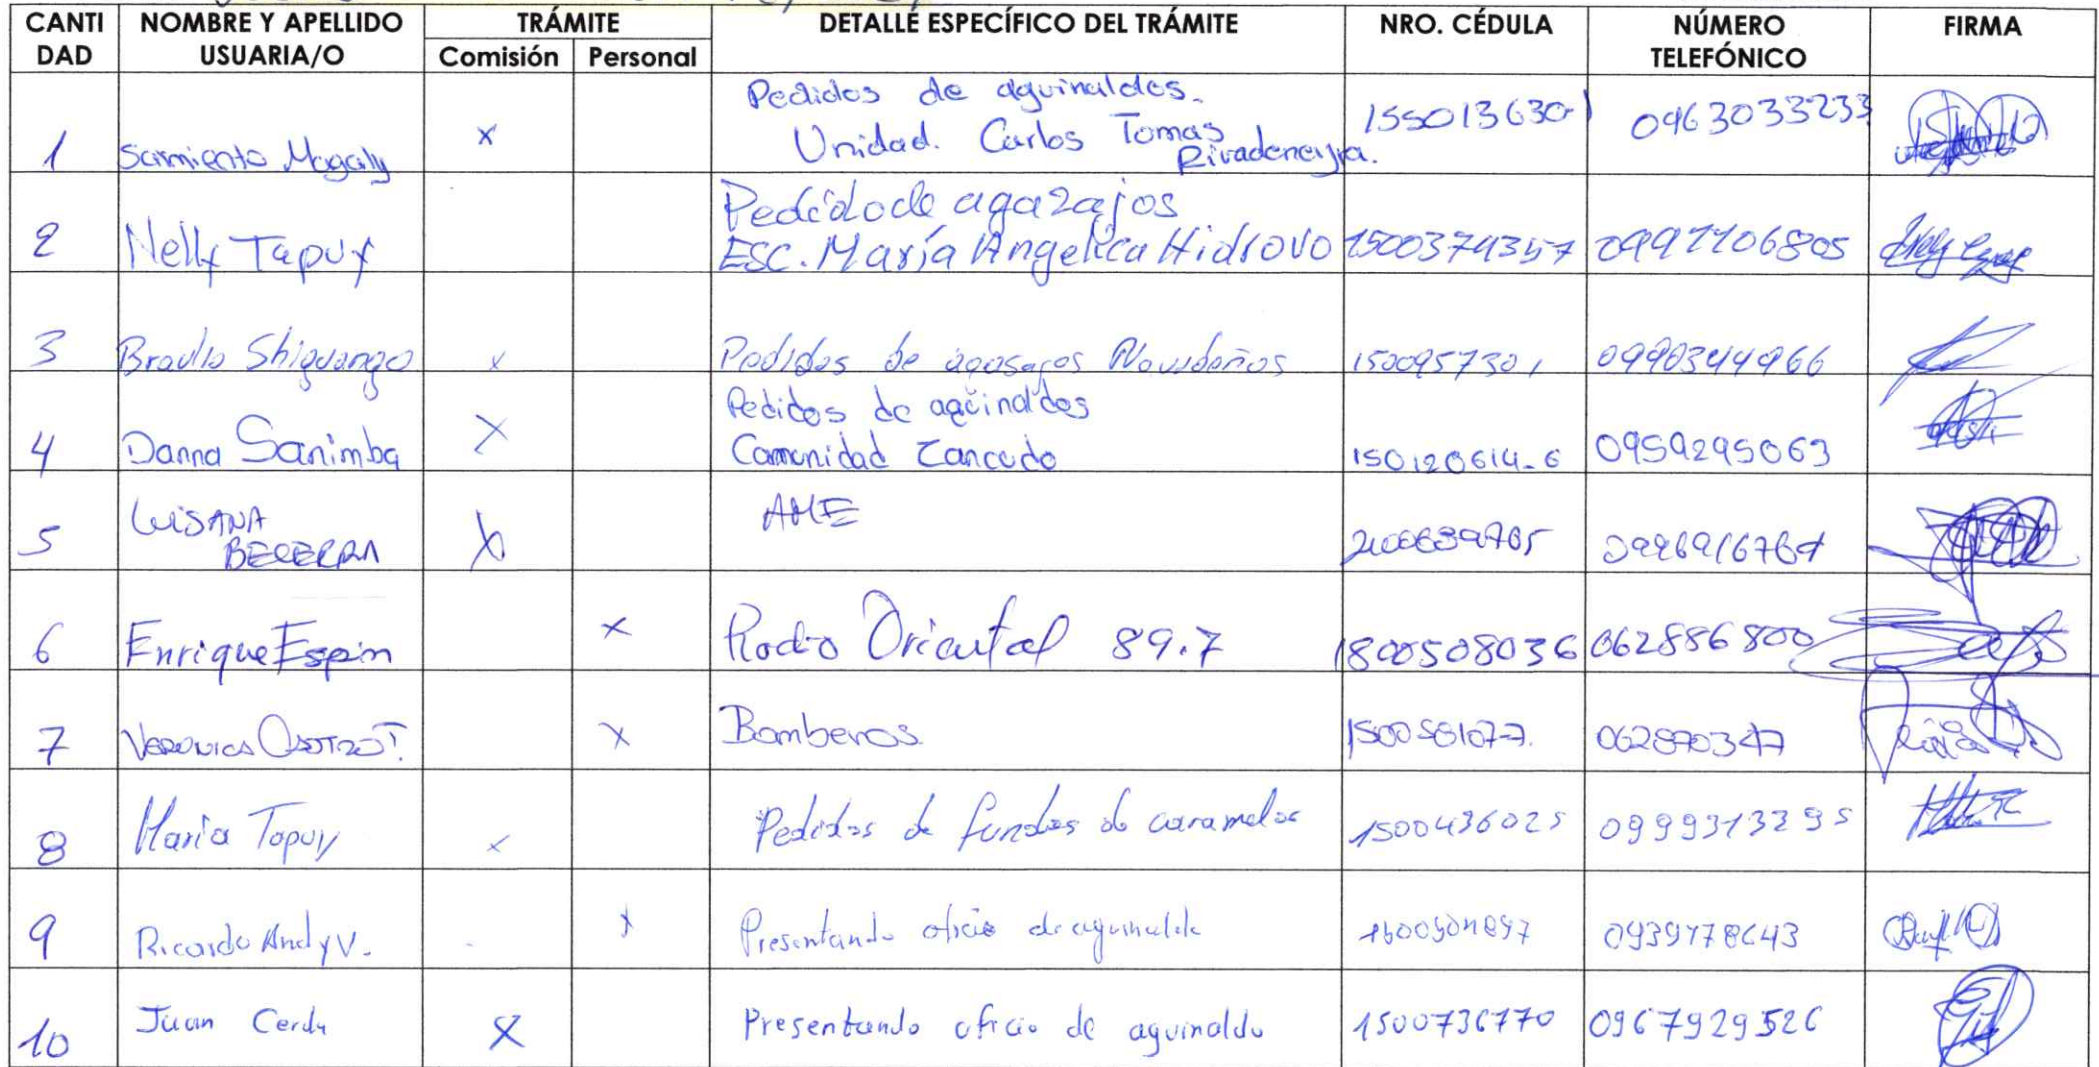 CANTI DAD NOMBRE Y APELLIDO USUARIA/O TRÁMITE Comisión Personal DETALLE ESPECÍFICO DEL TRÁMITE NRO. CÉDULA NÚMERO TELEFÓNICO FIRMA
1 Sarmiento Magaly x Pedidos de aguinaldos. 155013630-1 0963033233
Unidad. Carlos Tomas Rivadeneyra.
2 Nelly Tapuy Pedido de agazajos
ESC. María Angelica Hidrovo 1500374357 0997106805
3 Braulio Shiguango x Pedidos de agasajos Navideños 150095730 1 0990344966
4 Danna Sanimba x Pedidos de aguinaldos
Comunidad Zancudo 150120614-6 0959295063
5 LUISANA BECERRA x AME
6 Enrique Espin x Radio Oriental 89.7 1800508036 062886800
7 VERONICA CASTRO T. x Bomberos 062890347
8 Maria Tapuy x Pedidos de fundas de caramelos 1500436025 0999313295
9 Ricardo Andy V. x Presentando oficio de aguinaldo 0939778643
10 Juan Cerda x Presentando oficio de aguinaldo 1500736770 0967929526